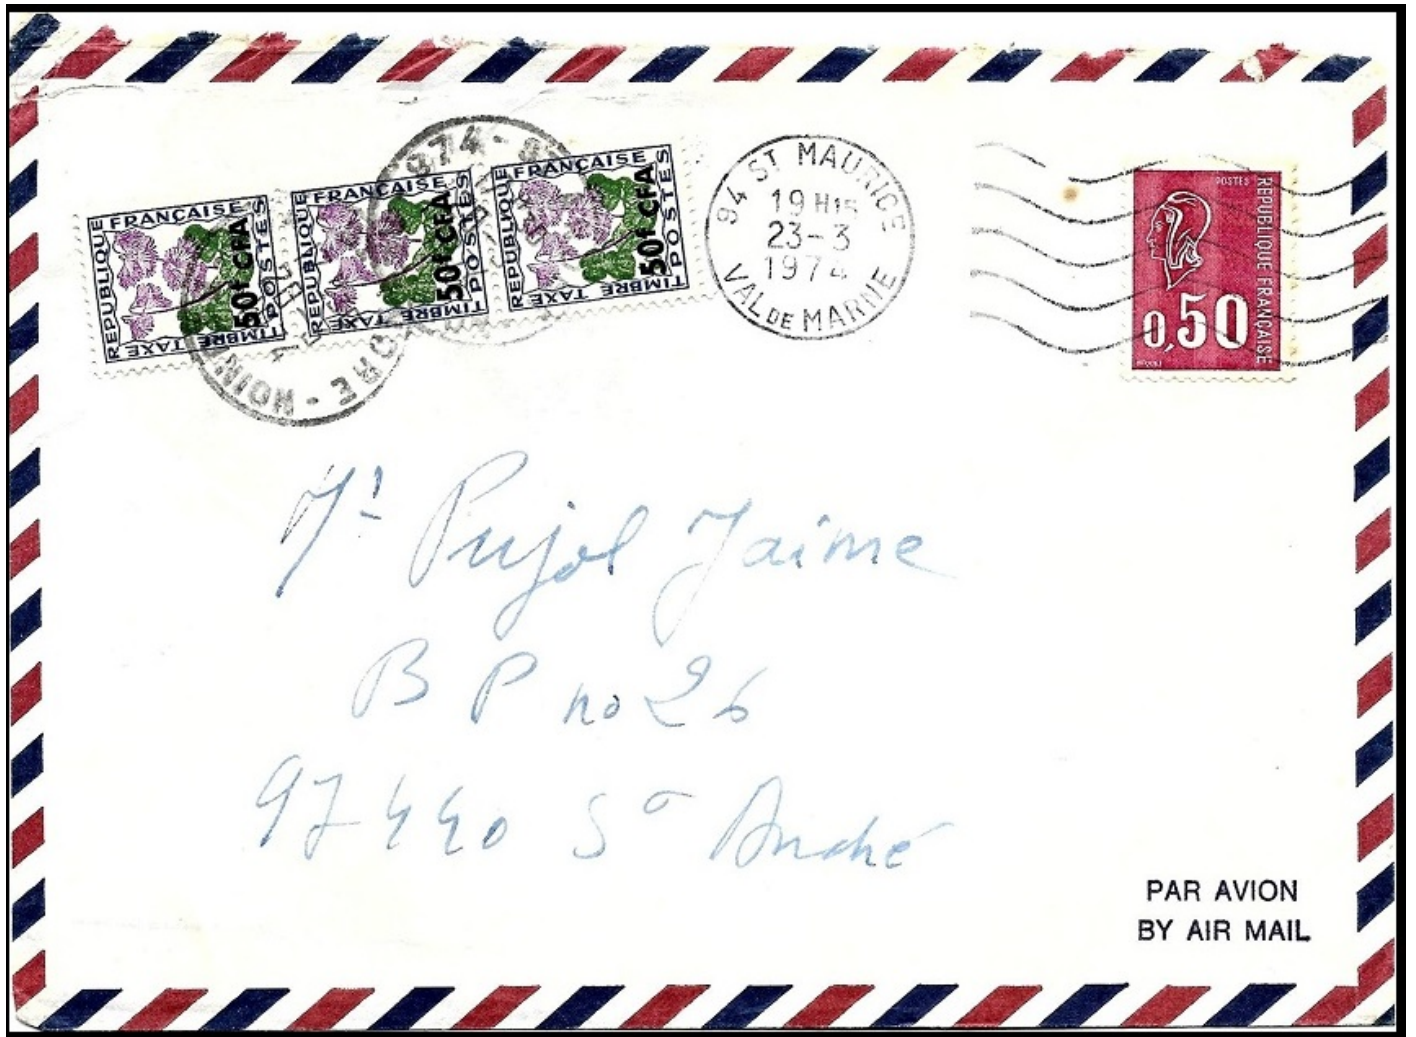 RÉPUBLIQUE FRANÇAISE
POSTES
TIMBRE TAXE
50f CFA
RÉPUBLIQUE FRANÇAISE
POSTES
TIMBRE TAXE
50f CFA
RÉPUBLIQUE FRANÇAISE
POSTES
TIMBRE TAXE
50f CFA
94 ST MAURICE
19H15
23-3
1974
VAL DE MARNE
POSTES
REPUBLIQUE FRANÇAISE
0,50
Mr Pujol Jaime
B P no 26
97440 St André
PAR AVION
BY AIR MAIL